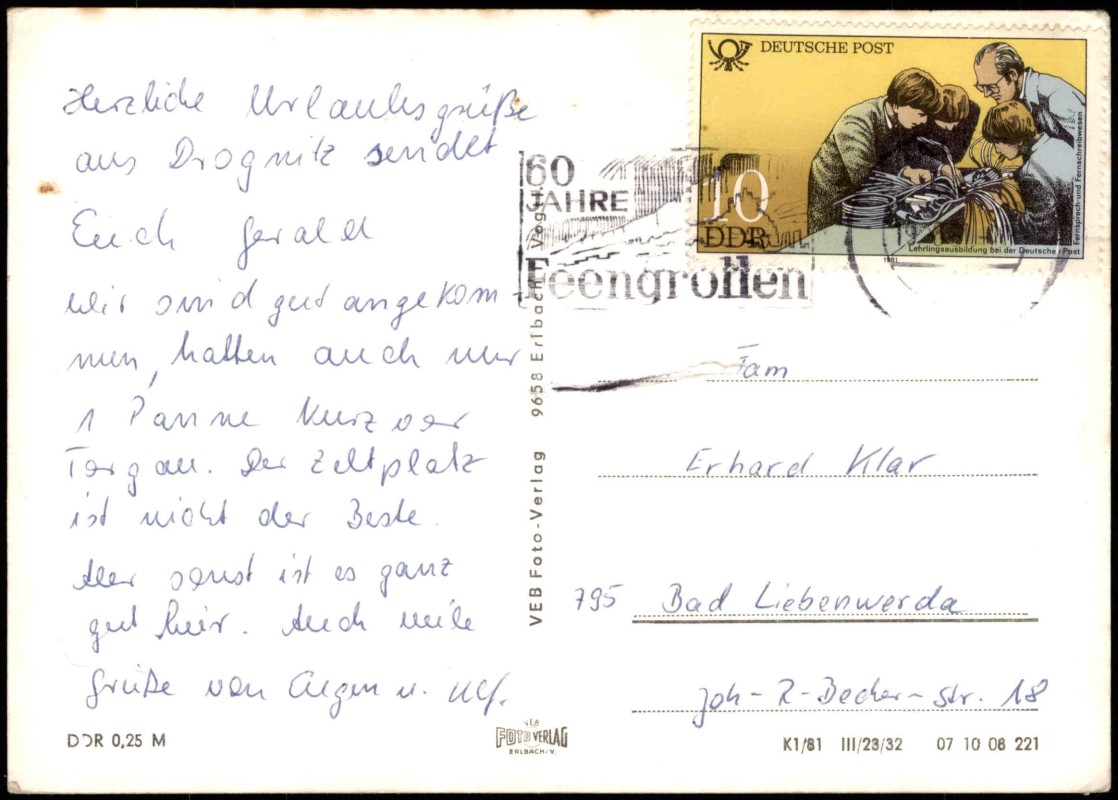 Herzliche Urlaubsgrüße
aus Drognitz sendet
Euch Gerald
Wir sind gut angekom-
men, hatten auch nur
1 Panne kurz vor
Torgau. Der Zeltplatz
ist nicht der Beste.
Aber sonst ist es ganz
gut hier. Auch viele
Grüße von u. Ulf.
DDR 0,25 M
VEB
FOTO VERLAG
ERLBACH/V.
VEB Foto-Verlag 9658 Erlbach Vogtl.
60
JAHRE
Feengrotten
DEUTSCHE POST
10
DDR
Lehrlingsausbildung bei der Deutschen Post
Fernsprech- und Fernschreibwesen
1981
Fam
Erhard Klar
795 Bad Liebenwerda
Joh-R-Becher-Str. 18
K1/81 III/23/32 07 10 08 221